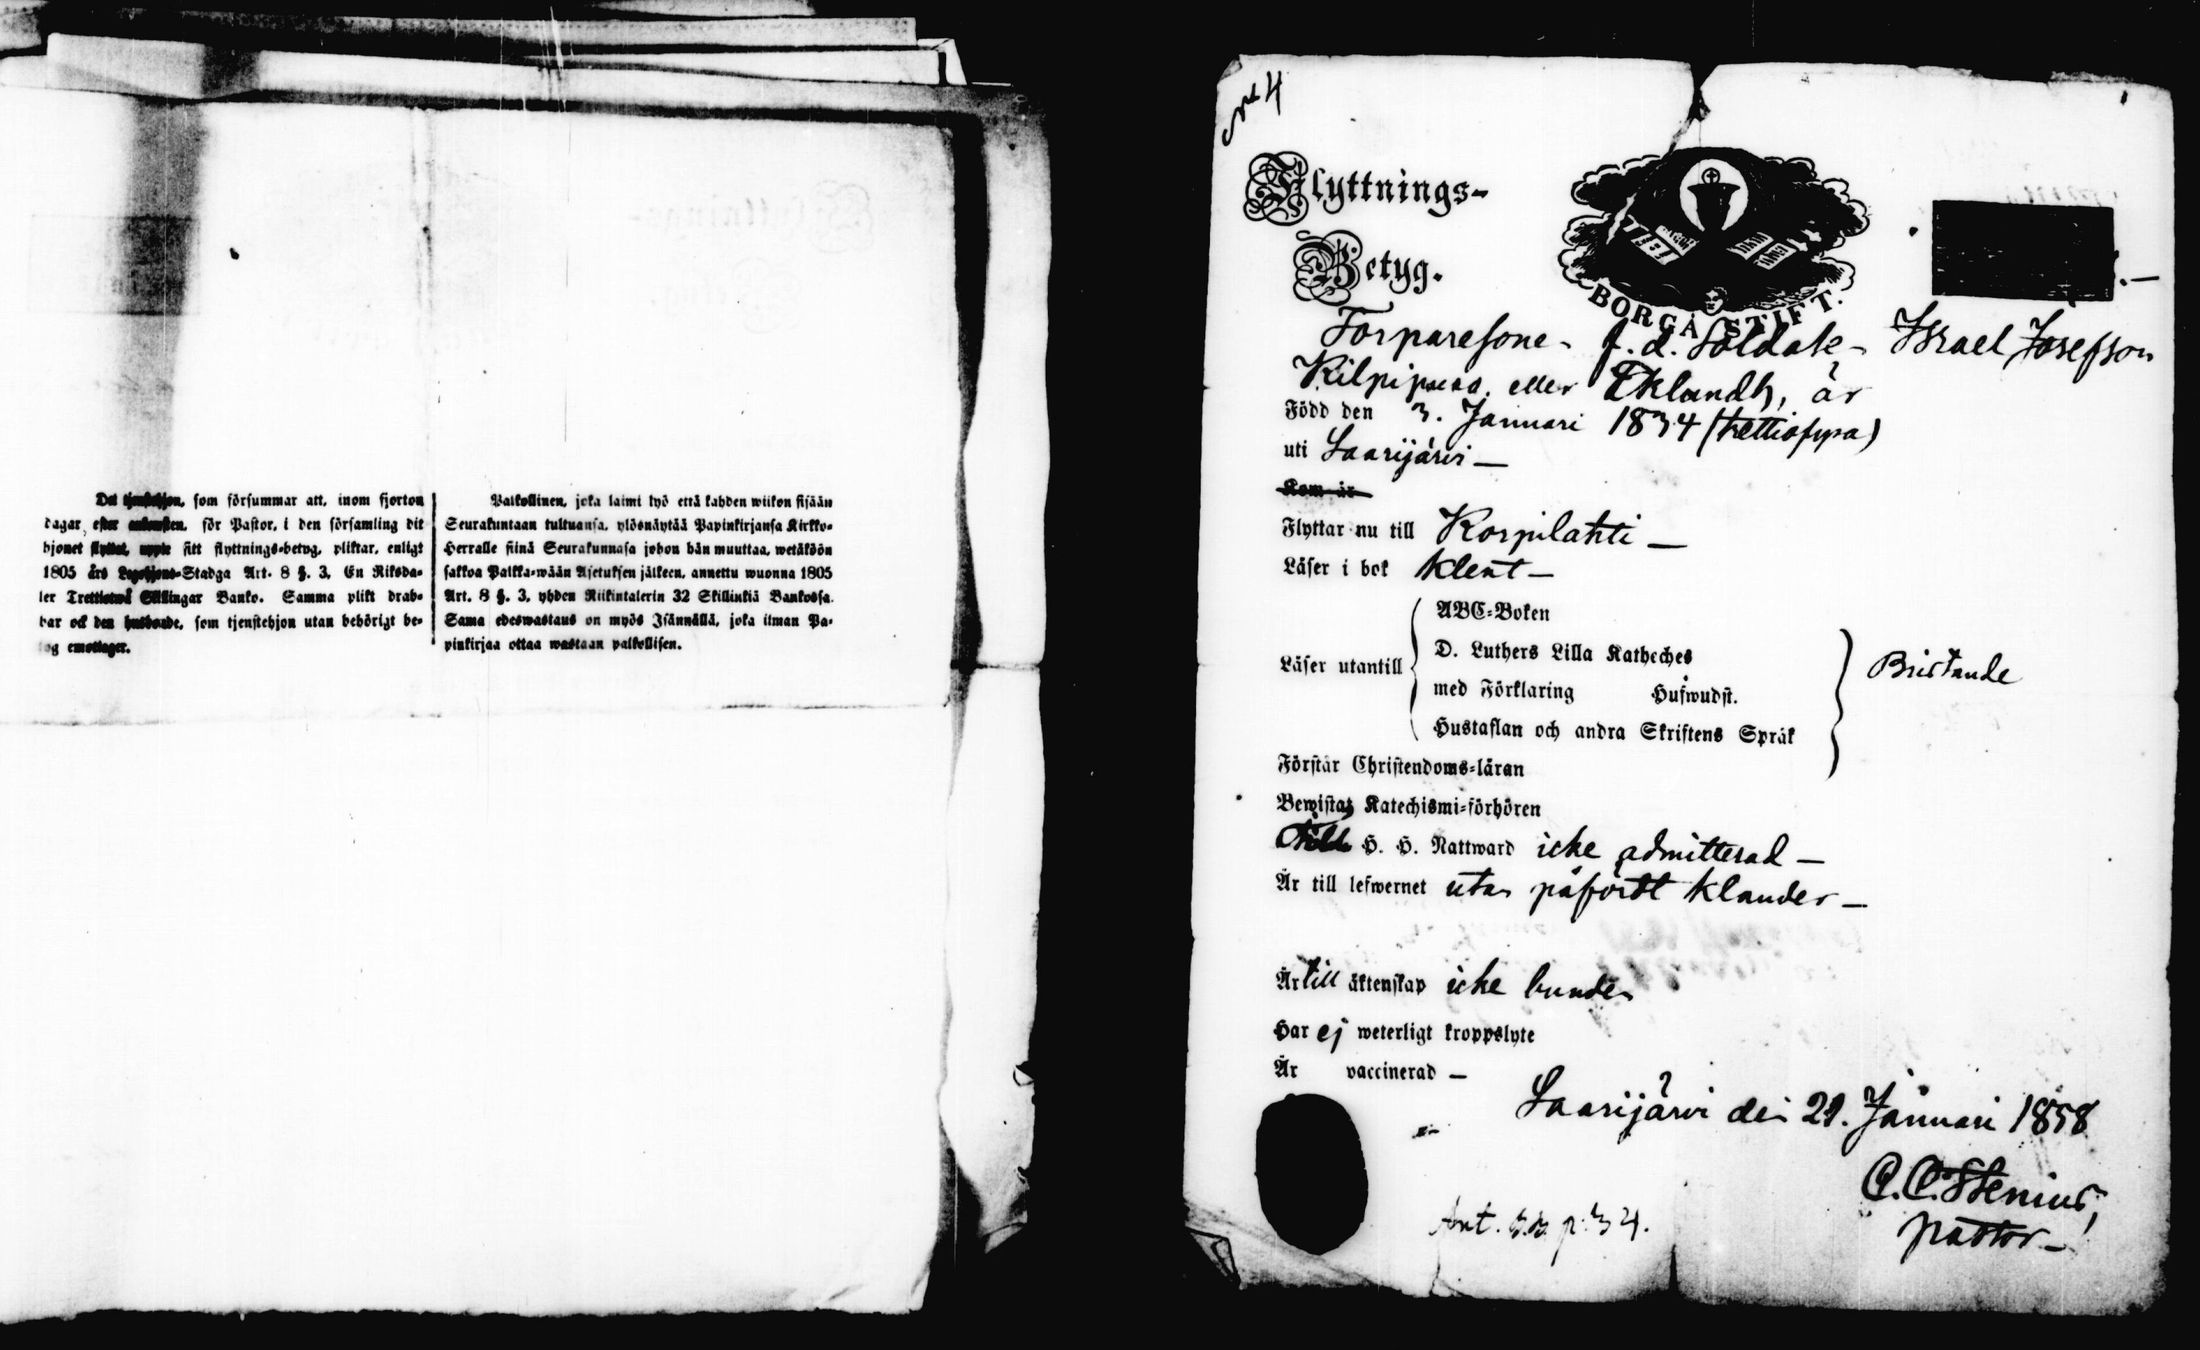 Det tjenstehjon, som försummar att, inom fjorton
dagar, efter ankomsten, för Pastor, i den församling dit
hjonet flyttat, uppte sitt flyttnings-betyg, pliktar, enligt
1805 års Legohjons-Stadga Art. 8 §. 3, En Riksda-
ler Trettiotwå Skillingar Banko. Samma plikt drab-
bar ock den husbonde, som tjenstehjon utan behörigt be-
tyg emottager.
Palkollinen, joka laimi lyö että kahden wiikon sisään
Seurakuntaan tultuansa, ylösnäytää Papinkirjansa Kirkko-
Herralle siinä Seurakunnasa johon hän muuttaa, wetäköön
sakkoa Palkka-wään Asetuksen jälkeen, annettu wuonna 1805
Art. 8 §. 3, yhden Riikintalerin 32 Skillinkiä Bankossa.
Sama edeswastaus on myös Isännällä, joka ilman Pa-
pinkirjaa ottaa wastaan palkollisen.
No 4
Flyttnings-
Betyg.
BORGÅ STIFT.
Torparesone- f. d. Soldate- Israel Josefson
Kilpipuro eller Eklundh, är
Född den 3. Januari 1834 (trettiofyra)
uti Saarijärvi —
Kom år
Flyttar nu till Korpilahti —
Läser i bok klent —
Läser utantill
ABC-Boken
D. Luthers Lilla Katheches
med Förklaring Husfwudst.
Hustaflan och andra Skriftens Språk
Bristande
Förstår Christendoms-läran
Bewistat Katechismi-förhören
Till H. H. Nattward icke admitterad —
Är till lefwernet utan påfördt klander —
Är till äktenskap icke bunden
Har ej weterligt kroppslyte
Är vaccinerad —
Saarijärvi den 21. Januari 1858
C. C. Stenius,
pastor —
Ant. p. 34.